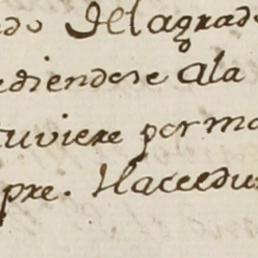 do del agrad
ediendose ala
tuviere por ma
pre. Haceedu